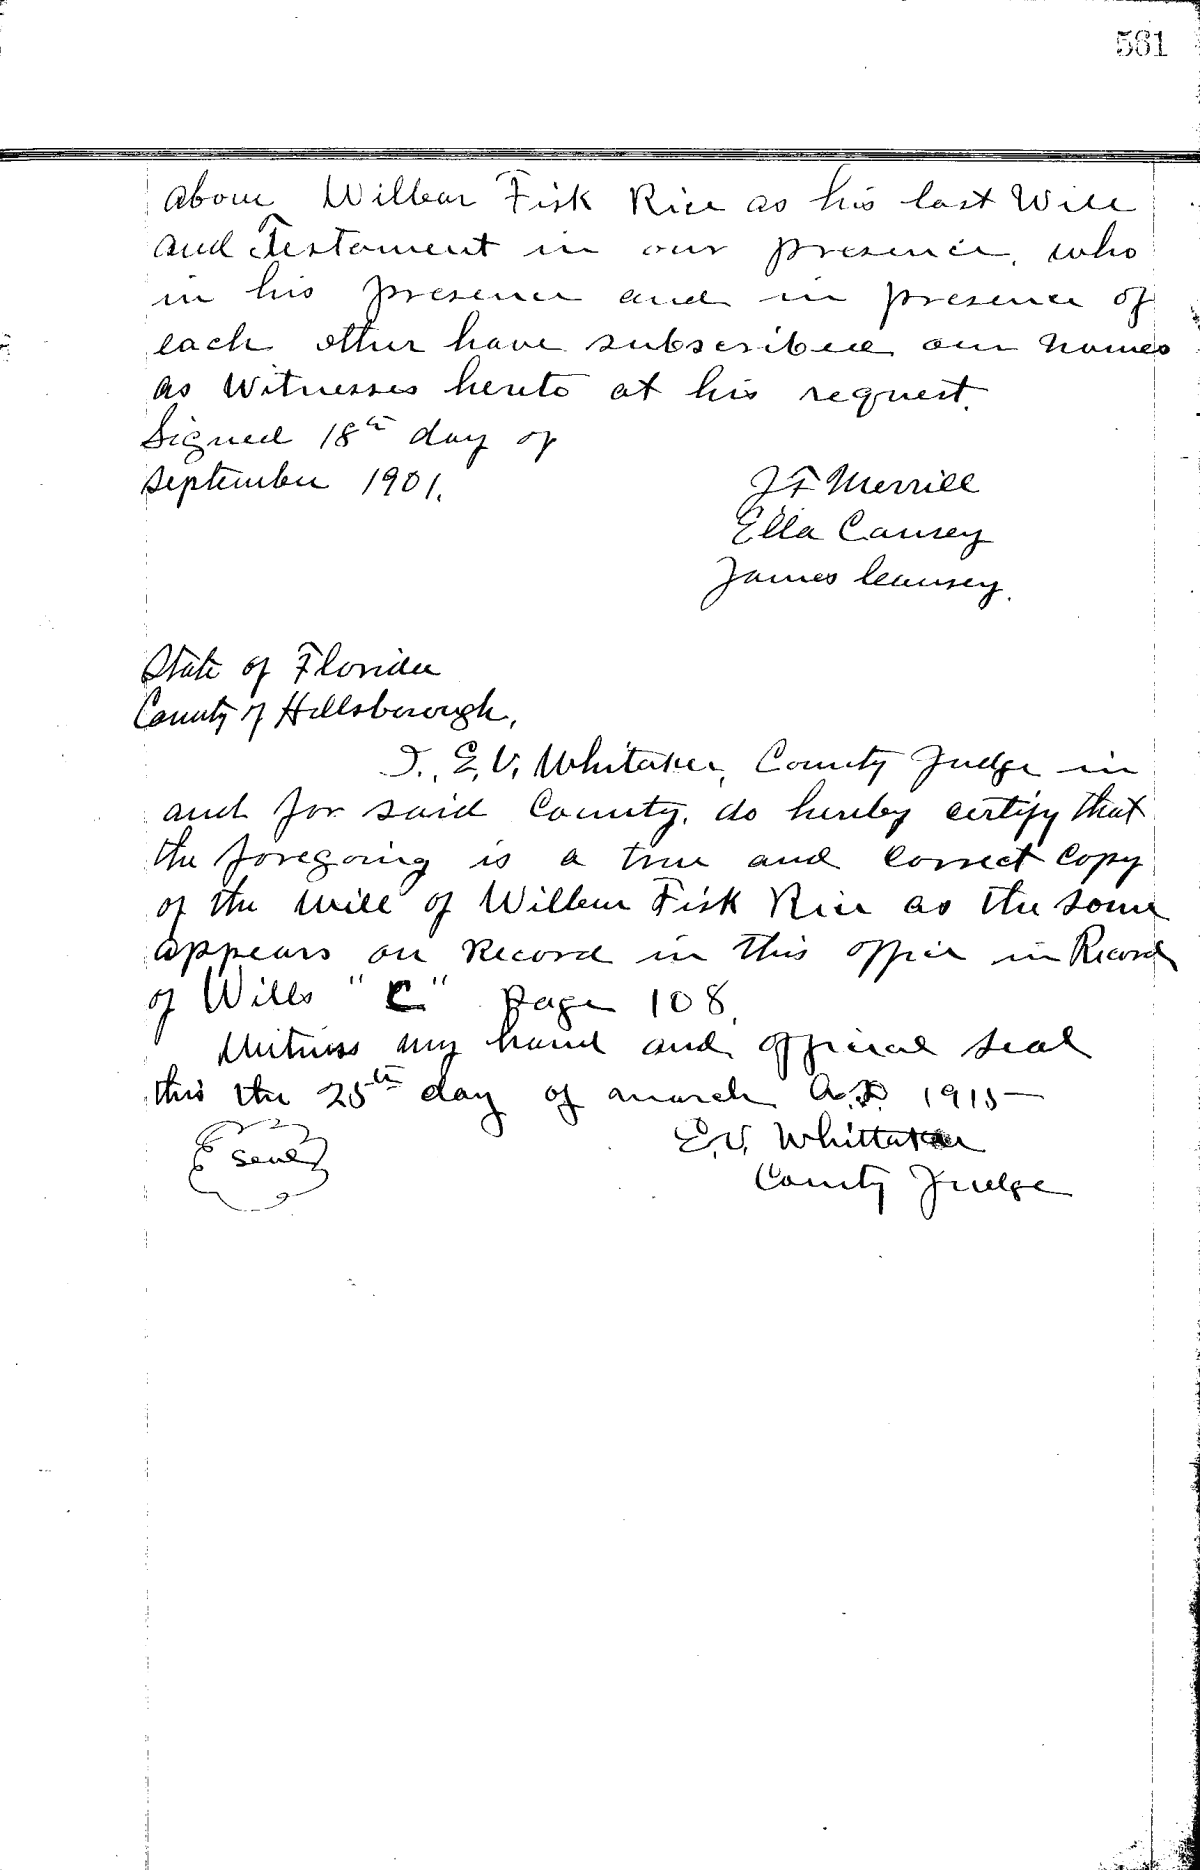 561
above Wilbur Fisk Rice as his last Will
and Testament in our presence, who
in his presence and in presence of
each other have subscribed our names
as Witnesses hereto at his request.
Signed 18th day of
September 1901.
J F Merrill
Ella Causey
James Causey.
State of Florida
County of Hillsborough,
I, E, V, Whitaker, County Judge in
and for said County, do hereby certify that
the foregoing is a true and correct copy
of the will of Wilbur Fisk Rice as the same
appears on Record in this office in Record
of Wills "C" page 108.
Witness my hand and official seal
this the 25th day of march A.D. 1915-
Seal
E.V. Whittaker
County Judge